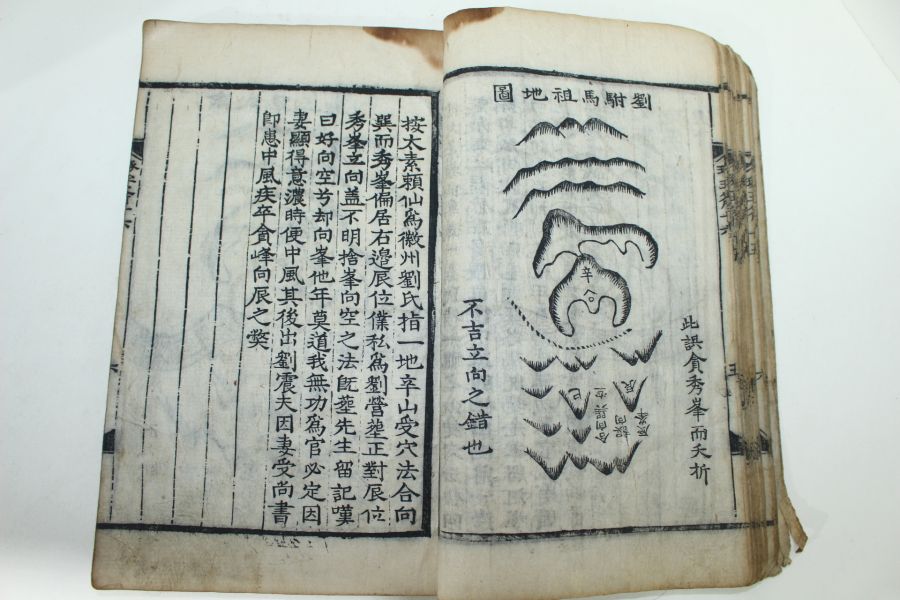 劉駙馬祖地圖
此誤貪秀峯而夭折
辛
巳
辰
辰峯
誤向
合向巽空
不吉立向之錯也
按太素賴仙爲徽州劉氏指一地辛山受穴法合向
巽而秀峯偏居右邉辰位僕私爲劉營塟正對辰位
秀峯立向盖不明捨峯向空之法旣塟先生留記嘆
曰好向空兮却向峯他年莫道我無功爲官必定因
妻顯得意濃時便中風其後出劉震夫因妻受尚書
卽患中風疾卒貪峰向辰之弊